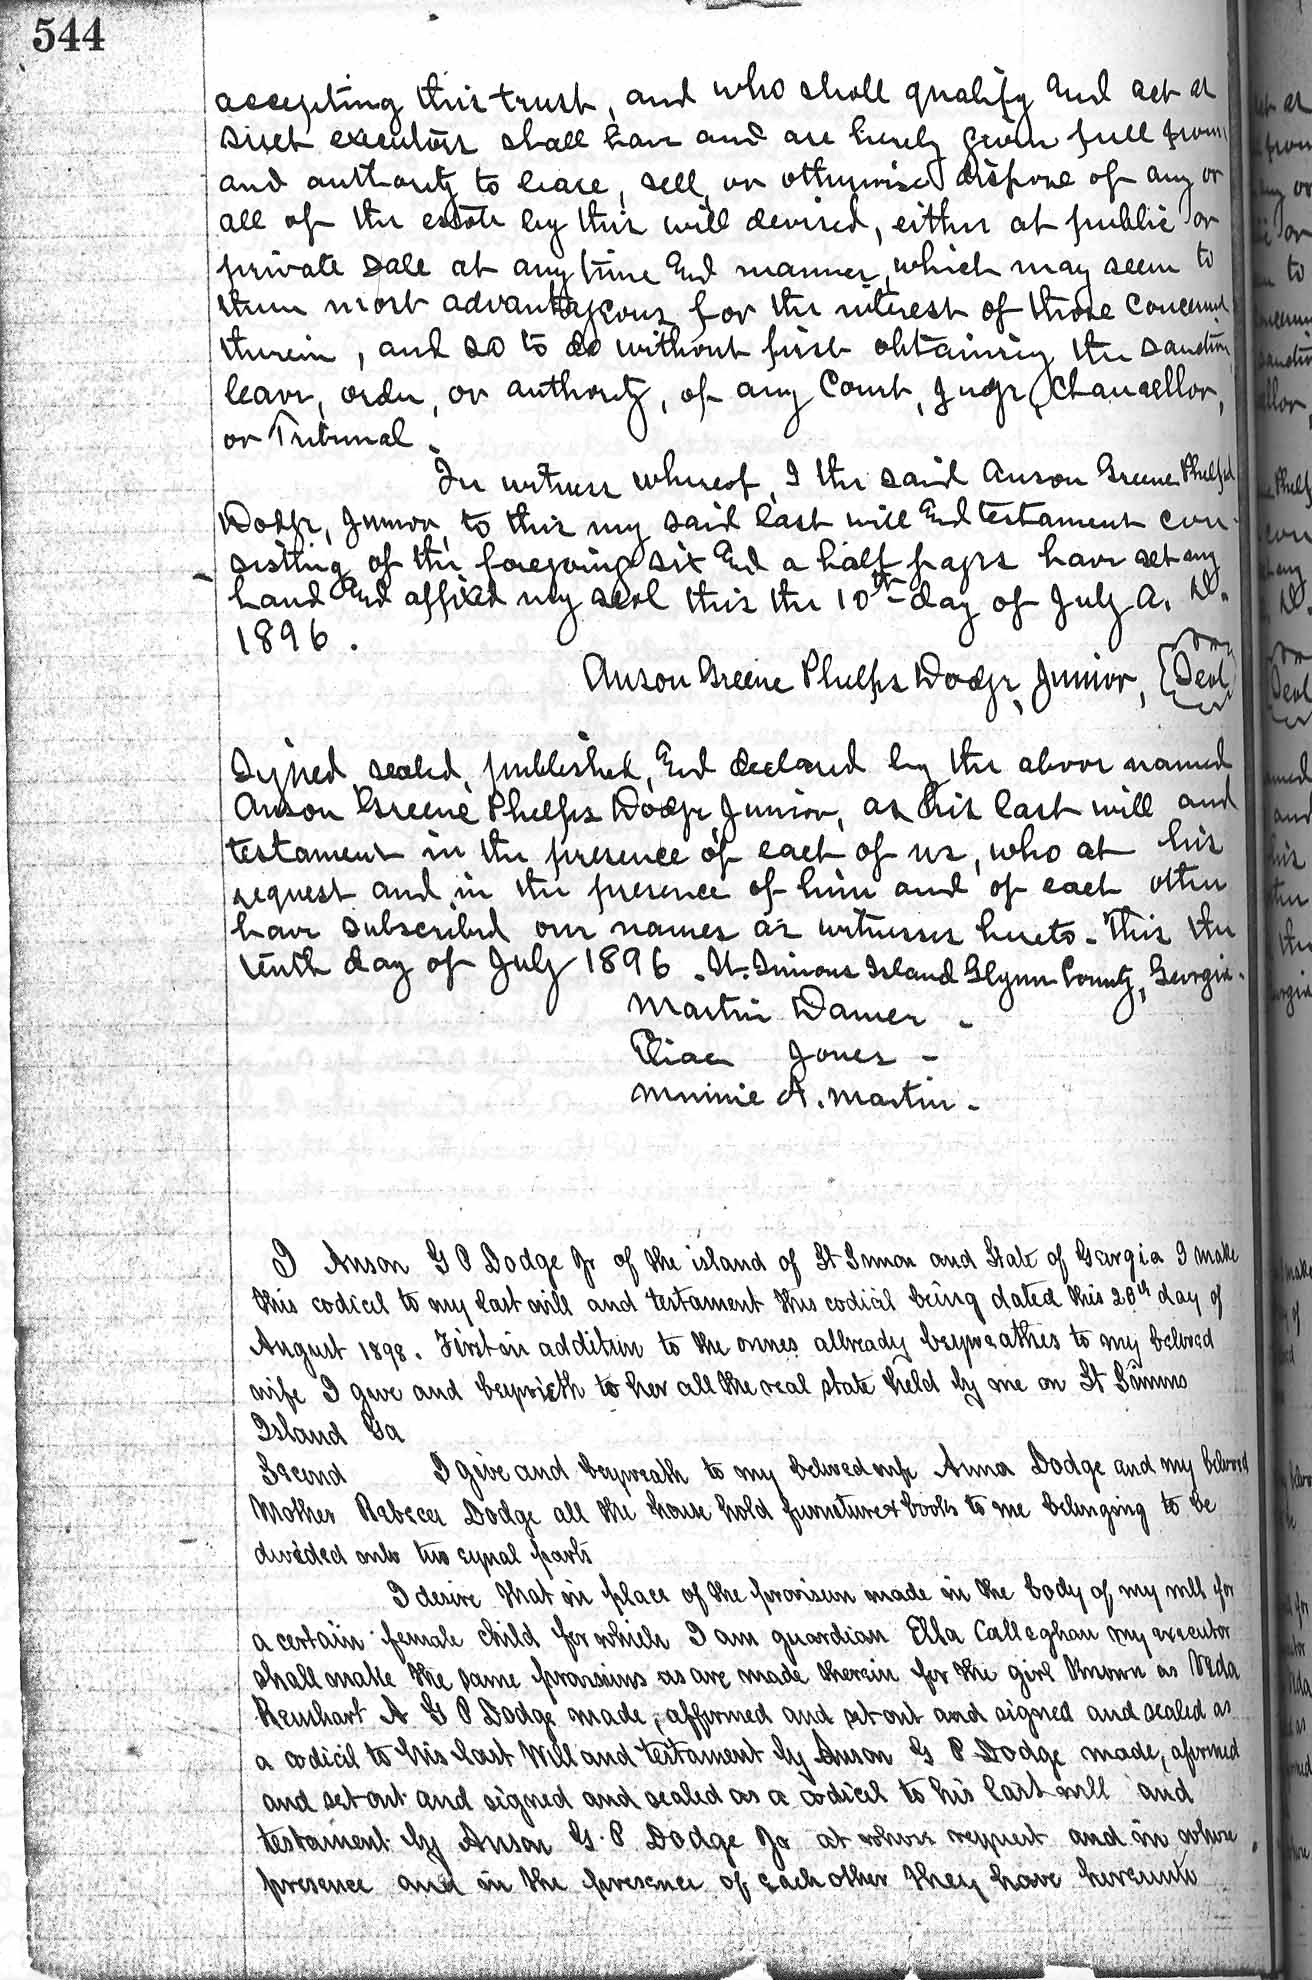 544
accepting this trust, and who shall qualify and act as
such executors shall have and are hereby given full power
and authority to lease, sell, or otherwise dispose of any or
all of the estate by this will devised, either at public or
private sale at any time and manner, which may seem to
them most advantageous for the interest of those concerned
therein, and so to do without first obtaining the sanction,
leave, order, or authority, of any Court, Judge, Chancellor,
or Tribunal.
In witness whereof, I the said Anson Greene Phelps
Dodge, Junior, to this my said last will and testament con-
sisting of the foregoing six and a half pages have set my
hand and affixed my seal this the 10th day of July A. D.
1896.
Anson Greene Phelps Dodge, Junior, {Seal}
Signed, sealed, published, and declared by the above named
Anson Greene Phelps Dodge Junior, as his last will and
testament in the presence of each of us, who at his
request and in the presence of him and of each other
have subscribed our names as witnesses hereto. This the
tenth day of July 1896. St. Simons Island Glynn County, Georgia.
Martin Damer.
Jones -
Minnie A. Martin.
I Anson G P Dodge Jr of the island of St Simon and State of Georgia I make
this codicil to my last will and testament this codicil being dated this 20th day of
August 1898. First in addition to the onnes allready beqweathes to my beloved
wife I give and beqwieth to her all the real state held by me on St Simmo
Island Ga
Second I give and beqweath to my beloved wife Anna Dodge and my beloved
Mother Rebecca Dodge all the house hold furniture & books to me belonging to be
divided onto two equal parts
I desire that in place of the provision made in the body of my will for
a certain female child for which I am guardian Ella Calleghan my executor
shall make the same provisions as are made therein for the girl known as Veda
Reinhart A G P Dodge made, affirmed and set out and signed and sealed as
a codicil to his last Will and testament by Anson G P Dodge made, afirmed
and set out and signed and sealed as a codicil to his last will and
testament by Anson G. P Dodge Jr at whose request and in whose
presence and in the presence of each other they have hereunto